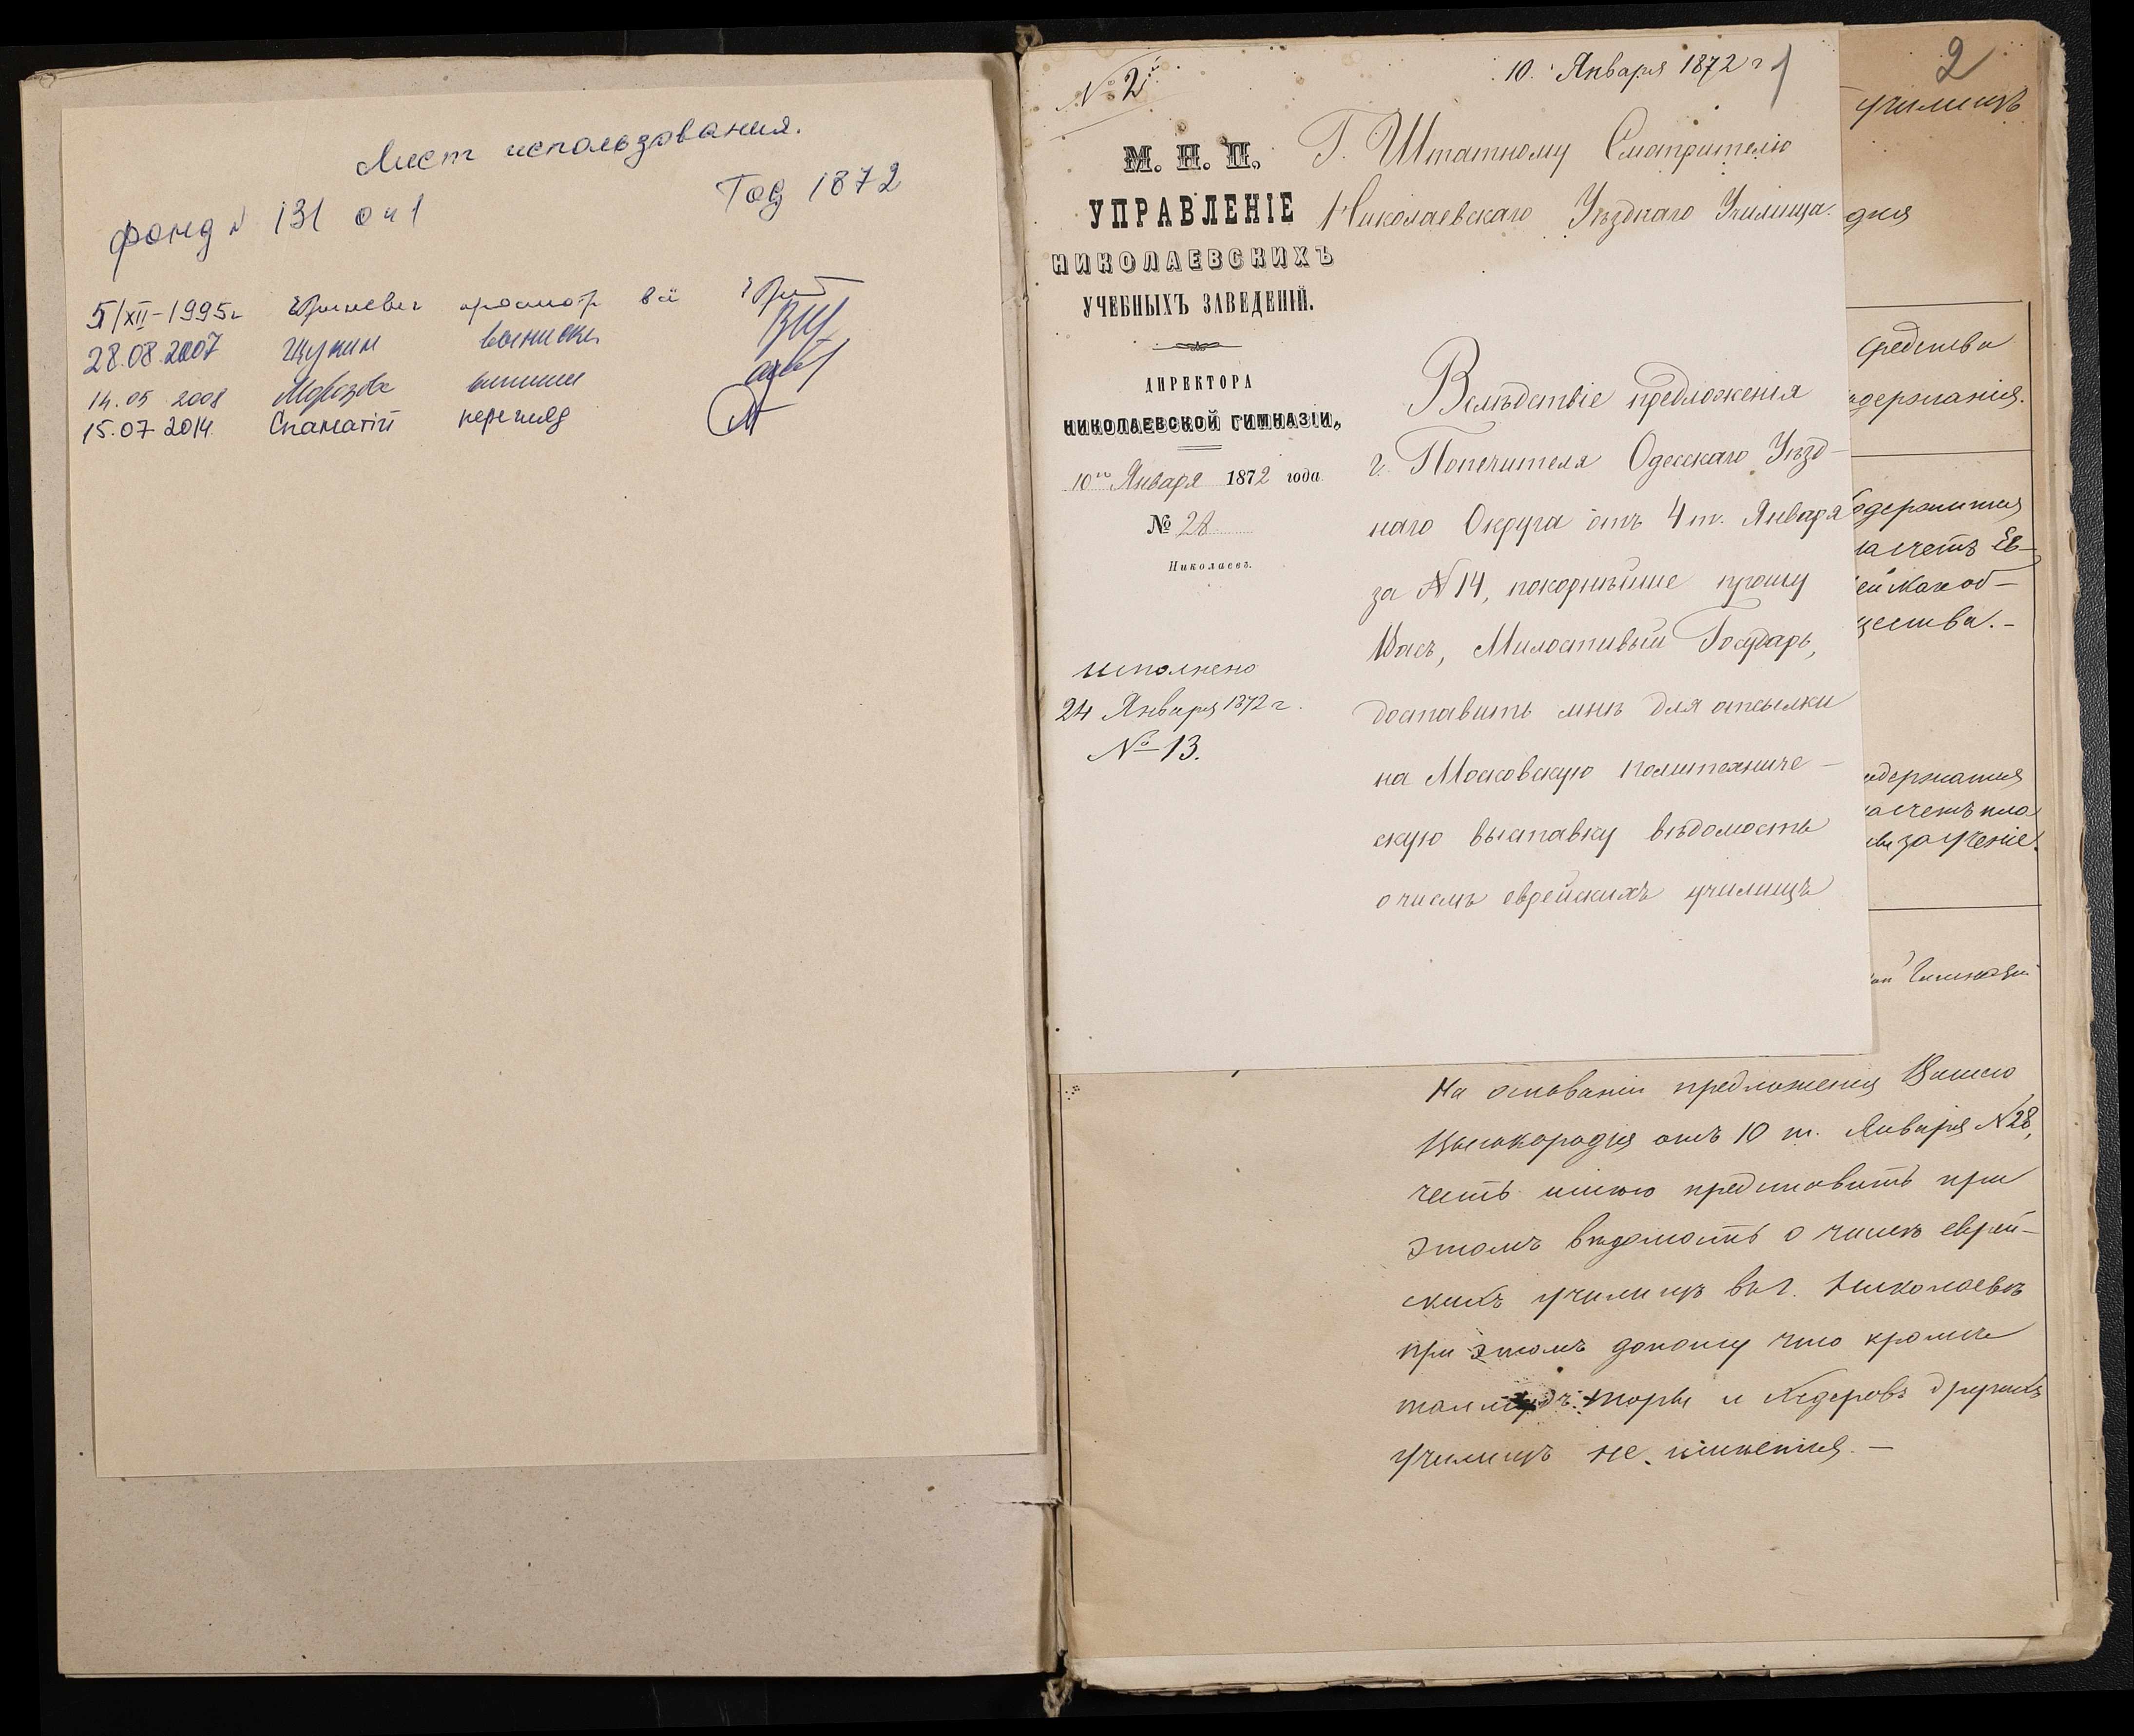 Лист использования.
Год 1872
фонд № 131 оп 1
5/XII-1995г просмотр
28.08.2007 Щукин выписки
14.05 2008
15.07.2014 перегляд
2
училищъ
дія
средства
одержанія.
одержится
на счетъ Ев-
ейскаго об-
щества.-
одержатся
на счетъ пла
за ученіе.
Гимназіи
№ 2
10. Января 1872 г
1
М. Н. П.
УПРАВЛЕНІЕ
НИКОЛАЕВСКИХЪ
УЧЕБНЫХЪ ЗАВЕДЕНІЙ.
ДИРЕКТОРА
НИКОЛАЕВСКОЙ ГИМНАЗІИ,
10го Января 1872 года
№ 28
Николаевъ.
исполнено
24 Января 1872 г.
№ 13.
Г. Штатному Смотрителю
Николаевскаго Уѣзднаго Училища.
Вслѣдствіе предложенія
г. Попечителя Одесскаго Уѣзд-
наго Округа отъ 4 т. Января
за № 14, покорнѣйше прошу
Васъ, Милостивый Государь,
доставить мнѣ для отсылки
на Московскую политехниче-
скую выставку вѣдомость
о числѣ еврейскихъ училищъ
На основаніи предложенія Вашего
Высокородія отъ 10 т. Января № 28,
честь имѣю представить при
этомъ вѣдомость о числѣ еврей-
скихъ училищъ въ г. Николаевѣ
при этомъ доношу что кромѣ
талмудъ-торы и хедеровъ другихъ
училищъ не имѣется. —